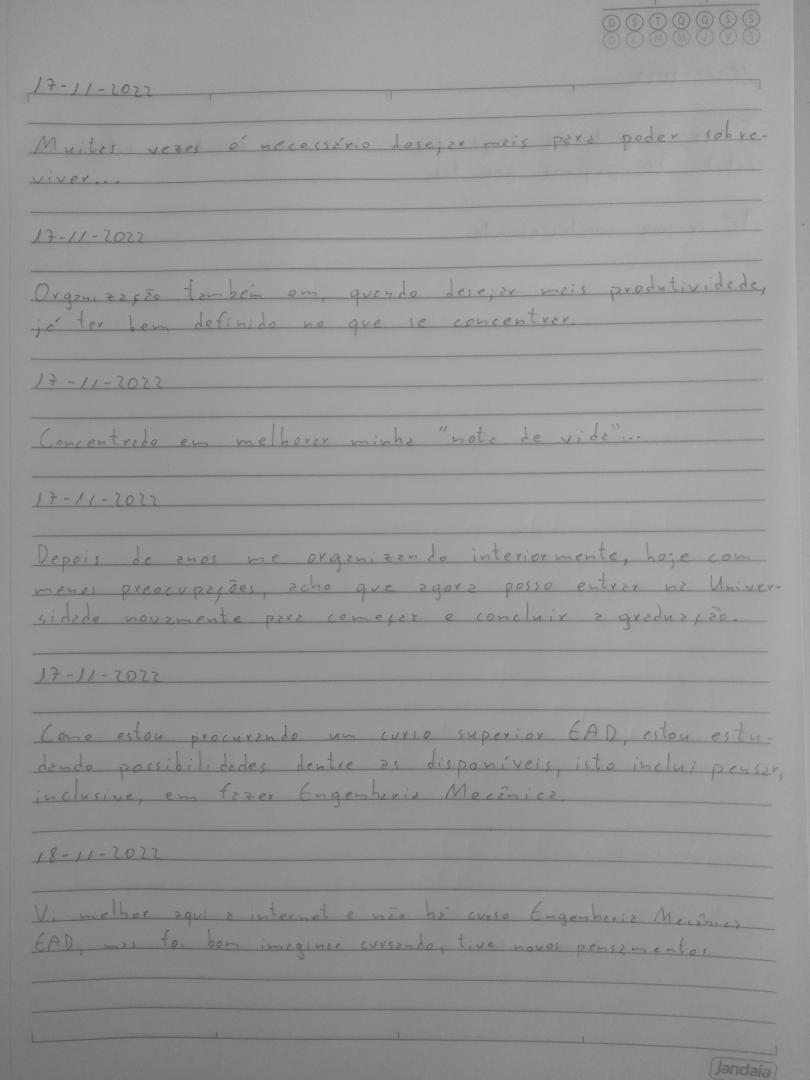 D S T Q Q S S
D L M M J V S
17-11-2022
Muitas vezes é necessário desejar mais para poder sobre-
viver...
17-11-2022
Organização também em, quando desejar mais produtividade,
já ter bem definido no que se concentrar.
17-11-2022
Concentrado em melhorar minha "nota de vida"...
17-11-2022
Depois de anos me organizando interiormente, hoje com
menos preocupações, acho que agora posso entrar na Univer-
sidade novamente para começar e concluir a graduação.
17-11-2022
Como estou procurando um curso superior EAD, estou estu-
dando possibilidades dentre as disponíveis, isto inclui pensar,
inclusive, em fazer Engenharia Mecânica.
18-11-2022
Vi melhor aqui a internet e não há curso Engenharia Mecânica
EAD, mas foi bom imaginar cursando, tive novos pensamentos.
jandaia